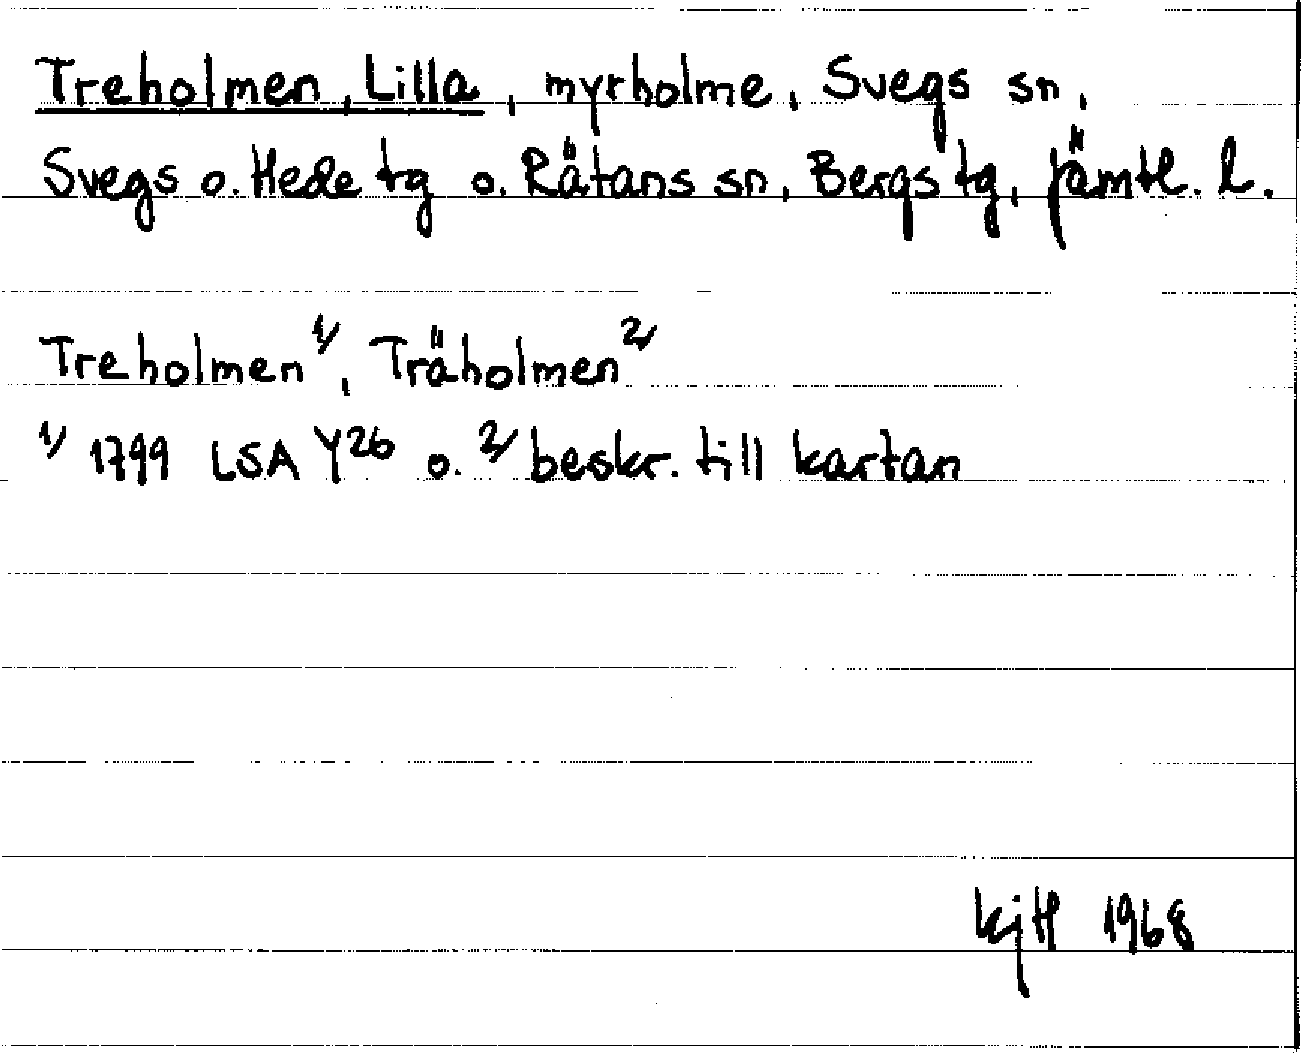 Treholmen, Lilla, myrholme, Svegs sn,
Svegs o. Hede tg o. Rätans sn, Bergs tg, Jämtl. l.
Treholmen 1/, Träholmen 2/
1/ 1799 LSA Y26 o. 2/ beskr. till kartan
KjH 1968